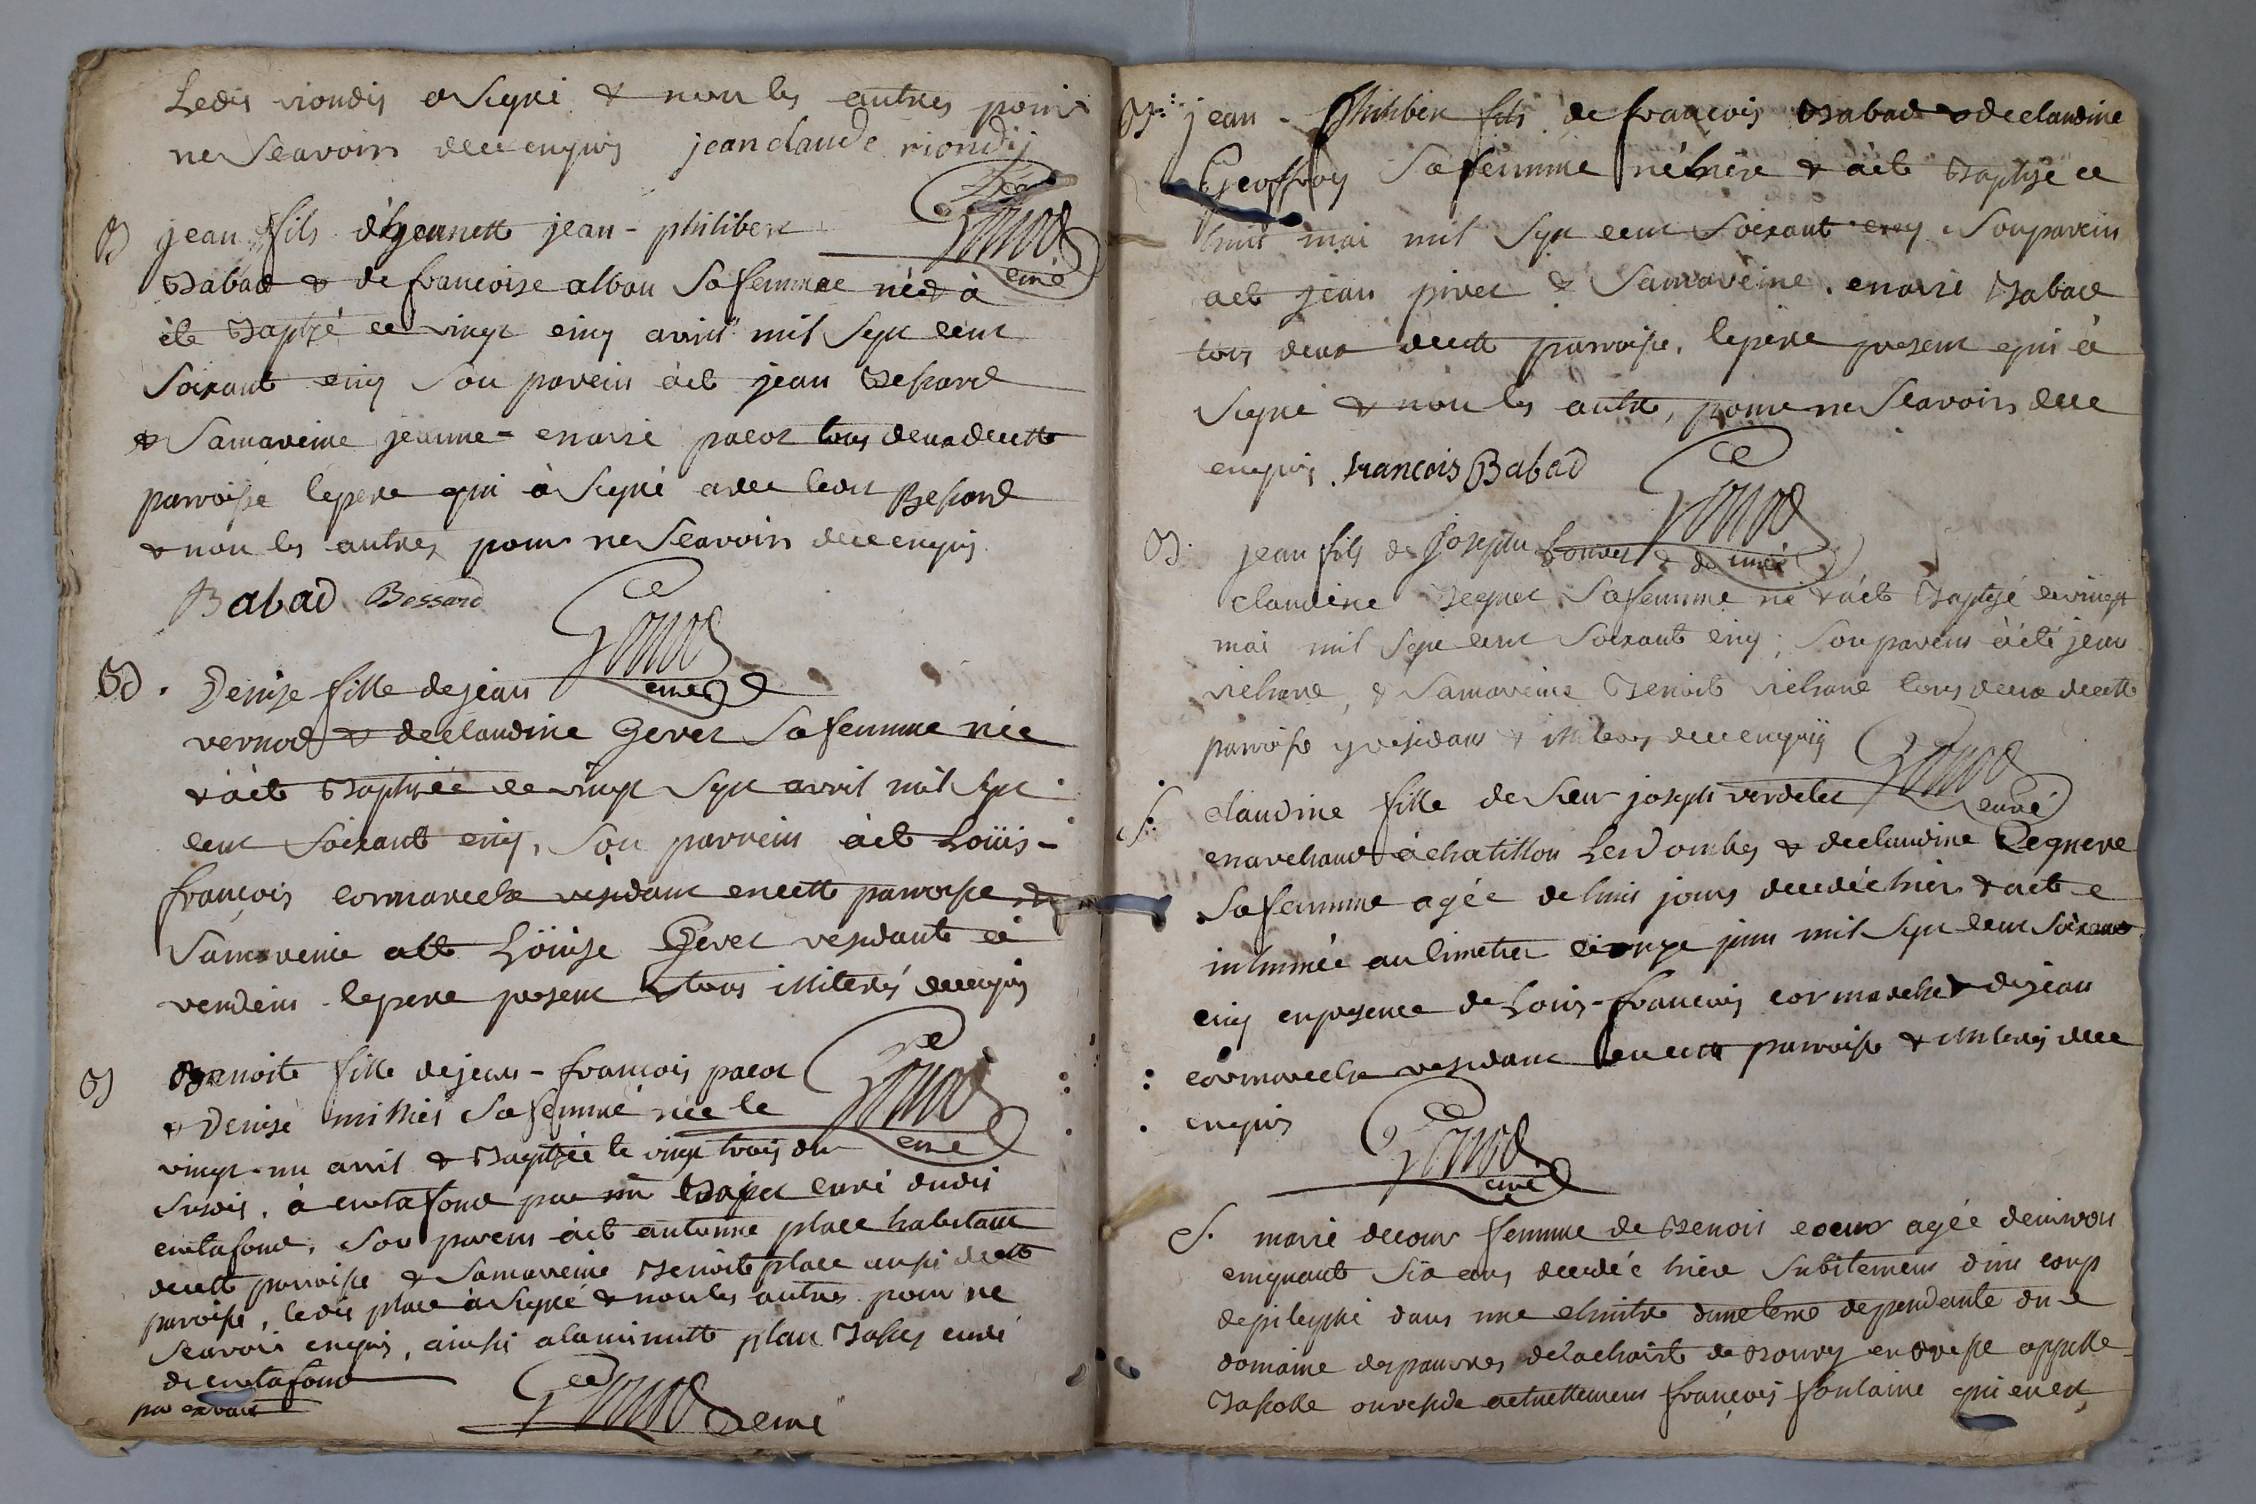 Ledit riondy a signé & non les autres pour
ne scavoir dece enquis jean claude riondij
Gonod
curé
B jean fils d'h jean-philibert
Babad & de francoise albon sa femme né & à
été Baptisé ce vingt cinq avril mil sept cent
soixant cinq son parein àeté jean Bessard
& sa mareine jeanne-marie pacot tous deux decette
parroisse le pere qui à signé avec ledit Bessard
& non les autres pour ne scavoir dece enquis
Babad Bessard
Gonod
curé
B. Denise fille de jean
vernod & de claudine Gevet sa femme née
& àeté Baptisée ce vingt sept avril mil sept
cent soixant cinq, son parrein àeté Loüis-
françois cormareche residant en cette parroisse &
sa mareine a eté Loüise Gevet residante à
vendeins le pere present & tous illiterés dece enquis
B Benoite fille de jean-françois pacot
& Denise millet sa femme née le
Gonod
curé
vingt-un avril & Baptisée le vingt trois du
susdit, à curtafond par mr curé dudit
curtafond, son parein àeté antoine place habitant
decette parroisse & sa mareine Benoite place aussi decette
parroisse, ledit place à signé & non les autres pour ne
scavoir enquis, ainsi a la minutte curé
de curtafond
par extrait
Gonod curé
B. jean-Philibert fils de françois Babad & de claudine
Geoffray sa femme né hier & àeté Baptisé ce
huit mai mil sept cent soixant cinq son parein
aeté jean pivet & sa mareine marie Babad
tous deux decette parroisse, le pere present qui à
signé & non les autres, pour ne scavoir dece
enquis francois Babad
Gonod
curé
B. jean fils de joseph & de
claudine sa femme né & àeté Baptisé ce vingt
mai mil sept cent soixant cinq; son parein àeté jean
vichard, & sa mareine Benoite vichard tous deux decette
parroisse y residant & illiterés dece enquis
Gonod
curé
S. claudine fille de sieur joseph verdelet
marchand à chatillon les Dombes & de claudine
sa femme agée de huit jours decedée hier & aeté
inhumée au cimetier ce onze juin mil sept cent soixant
cinq en presence de Louis-francois cormareche & de jean
cormareche residant en cette parroisse & illiterés dece
enquis
Gonod
curé
S. marie decour femme de Benoit coeur agée d'environ
cinquante six ans decedée hier subitement d'un coup
d'epilepsie dans une d'une terre dependante du
domaine des pauvres de la charité de Bourg en Bresse appellé
ou reside actuellement françois fontaine qui en est